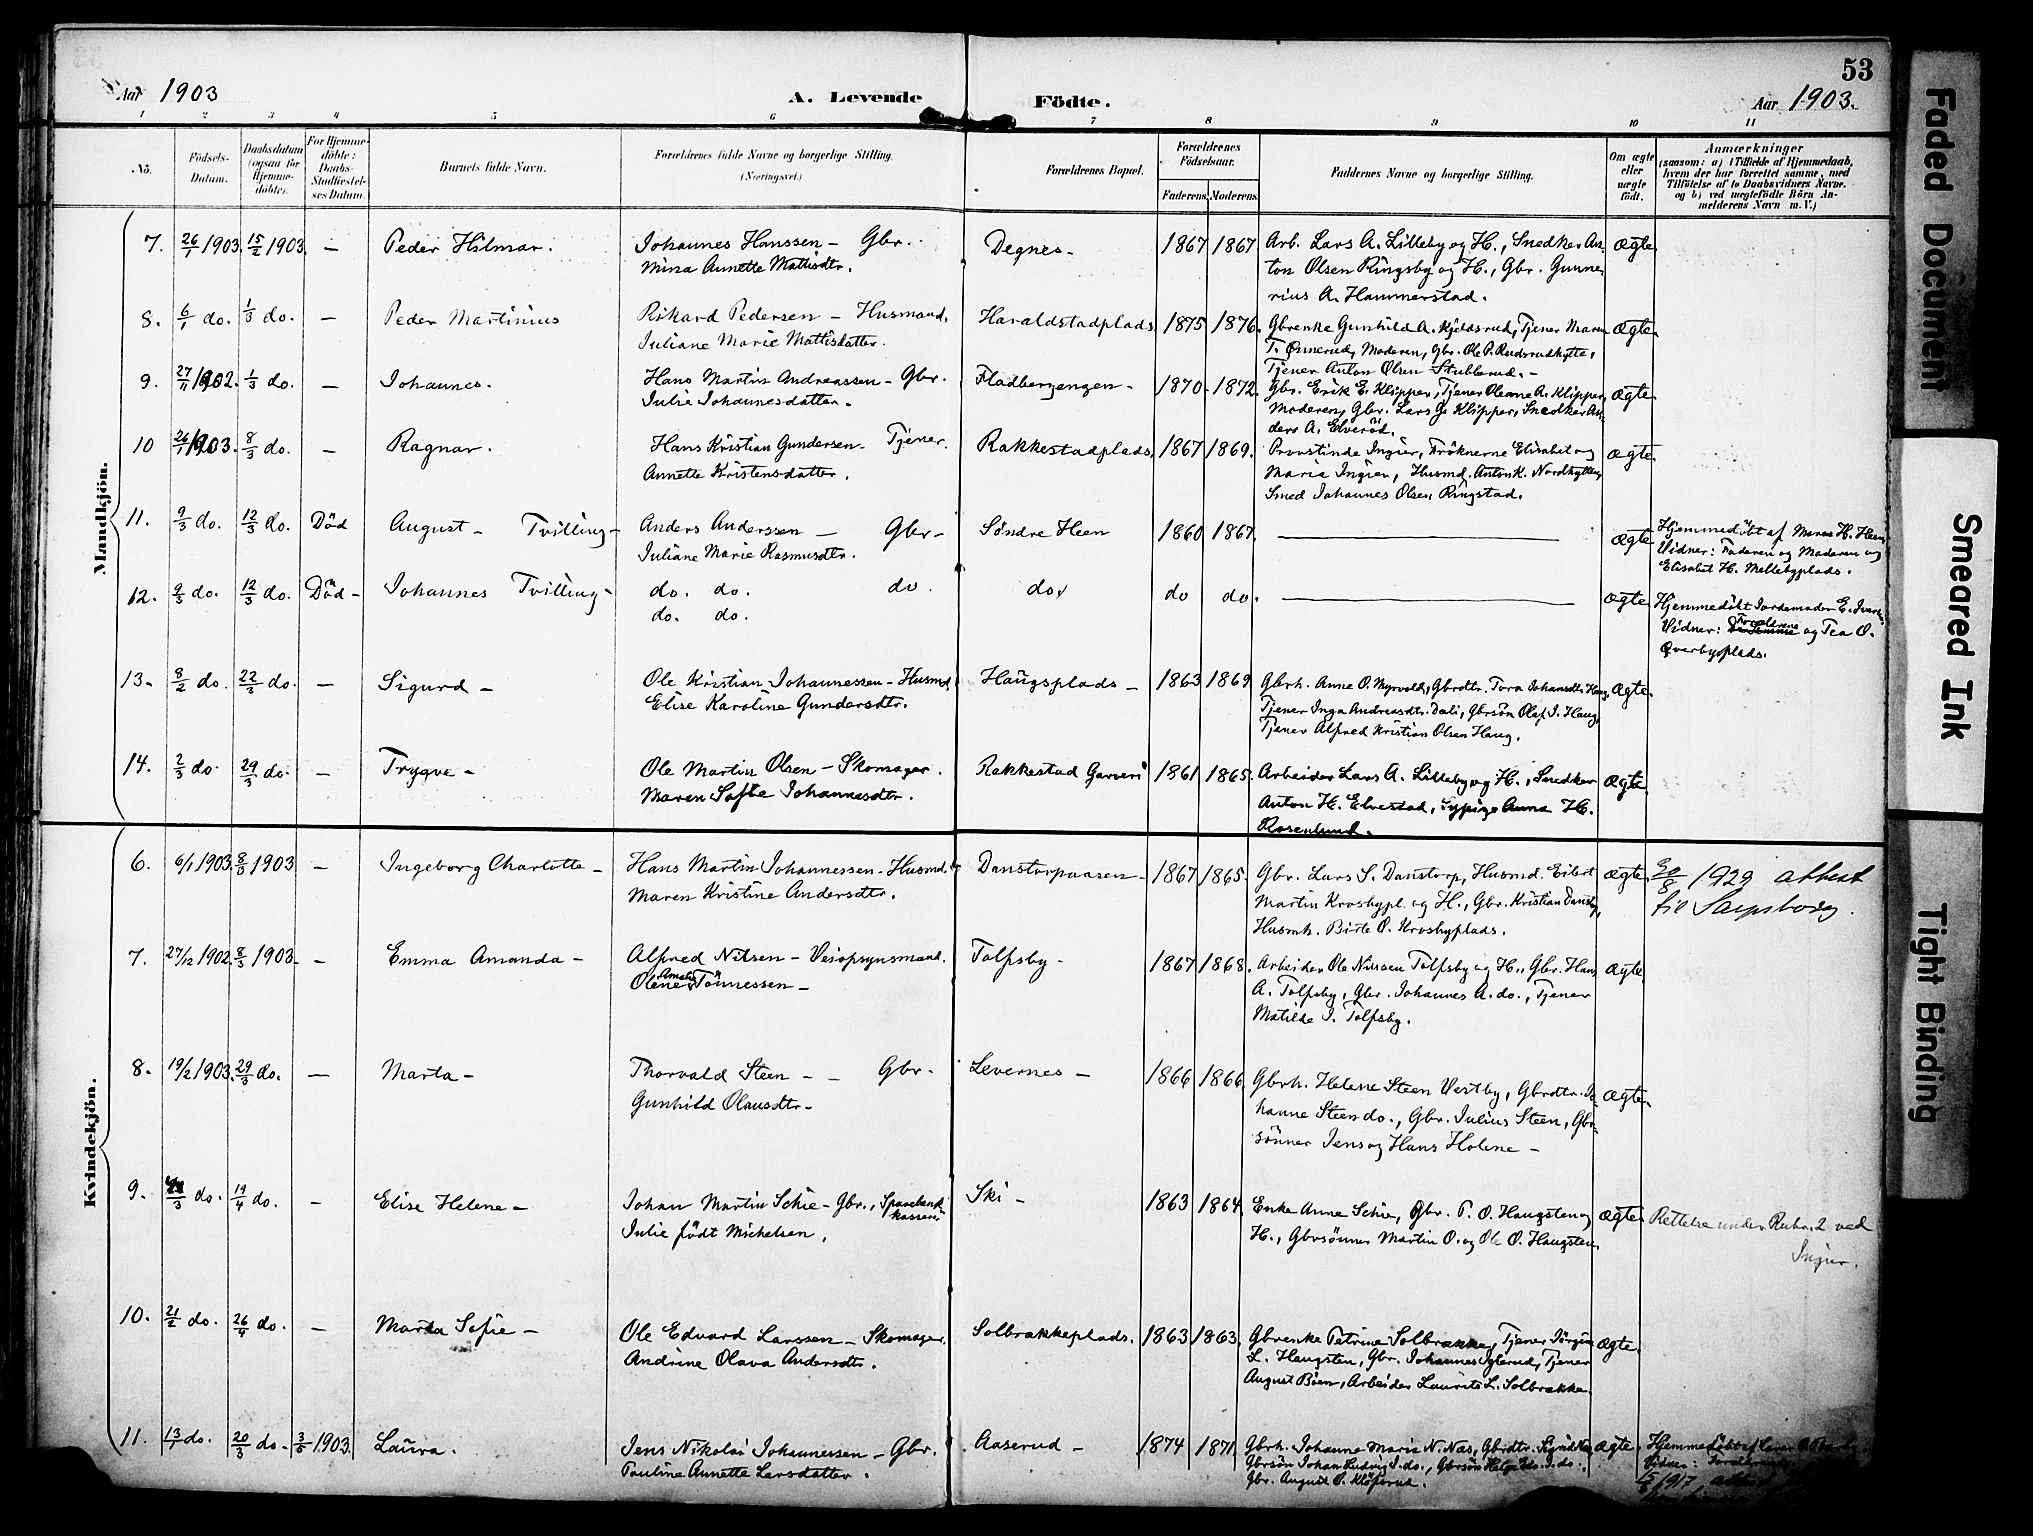 53
Aar 1903
A. Levende Födte.
Aar 1903.
1 2 3 4 5 6 7 8 9 10 11
No. Födsels-Datum. Daabsdatum (ogsaa for Hjemmedöbte). For Hjemmedöbte: Daabs-Stadfæstelses Datum. Barnets fulde Navn. Forældrenes fulde Navne og borgerlige Stilling. (Næringsvei.) Forældrenes Bopæl. Forældrenes Födselsaar. Faderens Moderens Faddernes Navne og borgerlige Stilling. Om ægte eller uægte födt. Anmærkninger
(saasom: a) i Tilfælde af Hjemmedaab,
hvem der har forrettet samme, med
Tilföielse af to Daabsvidners Navne.
og b) ved uægtefödte Börn An-
melderens Navn m. V.)
Mandkjön.
7. 26/1 1903. 15/2 1903. – Peder Hilmar. Johannes Hanssen – Gbr. Degnes – 1867 1867 Arb. Lars A. Lilleby og H., Snedker An- ægte
Mina Annette Mattisdtr. ton Olsen Ringsby og H., Gbr. Gunne-
rius A. Hammerstad.
8. 6/1 do. 1/3 do. – Peder Martinius Rikard Pedersen – Husmand. Haraldstadplads 1875 1876. Gbrenke Gunhild A. Kjeldsrud, Tjener Maren ægte
Juliane Marie Mattisdatter. Moderen, Gbr. Ole P. Rudsrudhytte,
Tjener Anton Olsen Stubberud. –
9. 27/11 1902. 1/3 do. – Johannes. Hans Martin Andreassen – Gbr. Fladbergengen – 1870 – 1872. Gbr. Erik E. Klipper, Tjener Oleane A. Klipper, ægte
Julie Johannesdatter. Moderen, Gbr. Lars G. Klipper, Snedker An-
ders A. Elveröd.
10 26/1 1903. 8/3 do. – Ragnar. Hans Kristian Gundersen – Tjener. Rakkestadplads 1867 1869. Provstinde Ingier, Fröknerne Elisabet og ægte
Annette Kristensdatter. Maria Ingier, Husmd. Anton K. Nordhytten,
Smed Johannes Olsen Ringstad.
11. 9/3 do. 12/3 do. Död August – Tvilling – Anders Anderssen – Gbr – Söndre Heen 1860 1867. ægte Hjemmedöbt af Maren H. Heen
Juliane Marie Rasmusdtr. Vidner: Faderen og Moderen og
Elisabet H. Mellebyplads.
12. 9/3 do. 12/3 do. Död – Johannes Tvilling – do. do. do. do. do do. ægte Hjemmedöbt Jordemoder E.
do. do. Vidner: Forældrene og Tea O.
Överbyplads.
13. 8/2 do. 22/3 do. – Sigurd – Ole Kristian Johannessen – Husmd Haugsplads – 1863 1869 Gbrh. Anne O. Myrvold, Gbrdtr. Tora Johansdtr. Haug, ægte
Elise Karoline Gundersdtr. Tjener Inga Andreasdtr. Dali, Gbrsön Olaf J. Haug,
Tjener Alfred Kristian Olsen Haug.
14. 2/3 do. 29/3 do. – Trygve – Ole Martin Olsen – Skomager. Rakkestad Garveri 1861 1865. Arbeider Lars A. Lilleby og H., Snedker ægte
Maren Sofie Johannesdtr. Anton H. Elvestad, Sypige Anna H.
Rosenlund.
Kvindekjön.
6. 6/1 1903. 8/3 1903 – Ingeborg Charlotte – Hans Martin Johannessen – Husmd. Danstorpaasen – 1867 1865. Gbr. Lars S. Danstorp, Husmd. Eilert ægte 30/8 1929 attest
Maren Kristine Andersdtr. Martin Krosbypl. og H., Gbr. Kristian Danstorp, til Sarpsborg.
Husmk. Birte O. Krosbyplads.
7. 27/12 1902. 8/3 1903 – Emma Amanda – Alfred Nilsen – Veiopsynsmand. Tolfsby – 1867 1868. Arbeider Ole Nilssen Tolfsby og H., Gbr. Hans ægte
Olene Amalie Tönnessen – A. Tolfsby, Gbr. Johannes A. do., Tjener
Matilde J. Tolfsby.
8. 19/2 1903. 29/3 do. – Marta – Thorvald Steen – – Gbr. Levernes – 1866 1866 Gbrh. Helene Steen Vestby, Gbrdtr. Jo- ægte
Gunhild Olausdtr – hanne Steen do., Gbr. Julius Steen, Gbr-
sönner Jens og Hans Holene –
9. /3 do. 19/4 do. – Elise Helene – Johan Martin Schie – Gbr., Sparebank kasserer Ski – 1863 1864 Enke Anne Schie, Gbr. P. O. Haugsten og ægte Rettelse under Rubr. 2 ved
Julie födt Michelsen, H., Gbrsönner Martin O. og Ole O. Haugsten. Ingier.
10. 21/2 do. 26/4 do. – Marta Sofie – Ole Edvard Larssen – Skomager. Solbrækkeplads. 1863 1863. Gbrenke Petrine Solbrække, Tjener Jörgine ægte.
Andrine Olava Andersdtr. L. Haugsten, Gbr. Johannes Iglerud, Tjener
August Böen, Arbeider Laurits L. Solbrække.
11. 13/1 do. 20/3 do. – 3/5 1903. Laura. Jens Nikolai Johannessen – Gbr. Aaserud – 1874 1871. Gbrh. Johanne Marie N. Næs, Gbrdtr. Sigrid ægte. Hjemmedöbt af
Pauline Annette Larsdatter. Gbrsön Johan Ludvig J. do., Gbrsön Helge J. do., Vidner: Forældrene
Gbr. August P. Klöfsrud. 1917